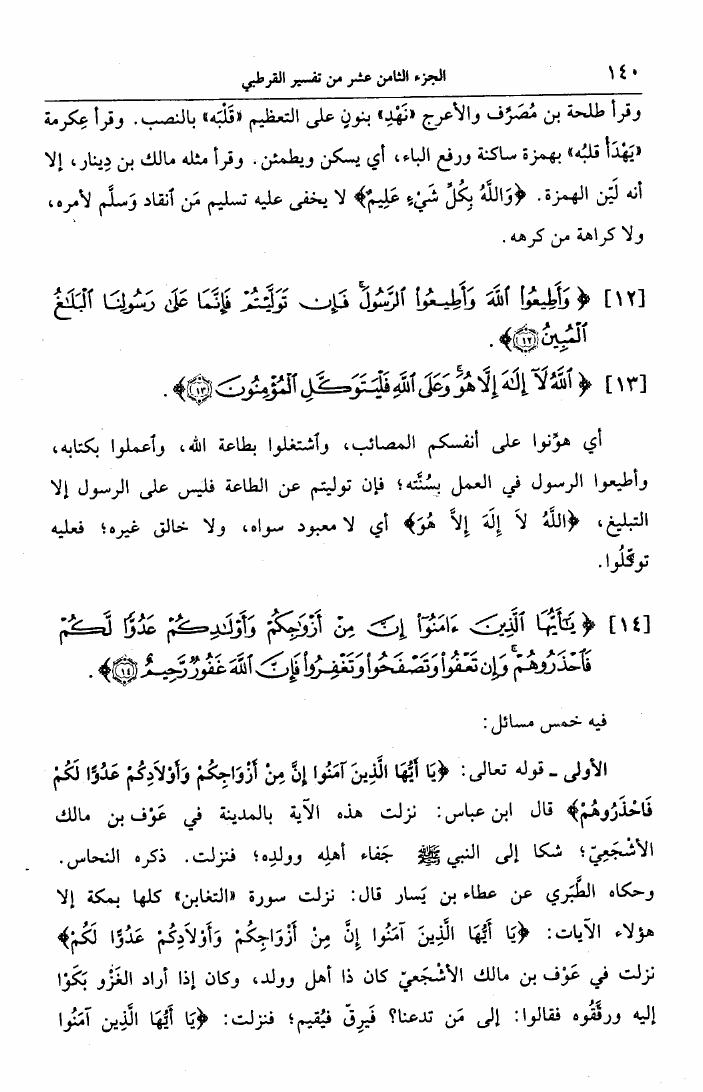 ١٤٠ الجزء الثامن عشر من تفسير القرطبي
وقرأ طلحة بن مُصَرِّف والأعرج «نَهْدِ» بنونٍ على التعظيم «قَلْبَه» بالنصب. وقرأ عِكرمة
«يَهْدَأ قلبُه» بهمزة ساكنة ورفع الباء، أي يسكن ويطمئن. وقرأ مثله مالك بن دِينار، إلا
أنه لَيّن الهمزة. ﴿وَاللَّهُ بِكُلِّ شَيْءٍ عَلِيمٌ﴾ لا يخفى عليه تسليم مَن ٱنقاد وَسلَّم لأمره،
ولا كراهة من كرهه.
[١٢] ﴿ وَأَطِيعُوا۟ ٱللَّهَ وَأَطِيعُوا۟ ٱلرَّسُولَ ۚ فَإِن تَوَلَّيْتُمْ فَإِنَّمَا عَلَىٰ رَسُولِنَا ٱلْبَلَـٰغُ
ٱلْمُبِينُ ۝١٢﴾.
[١٣] ﴿ ٱللَّهُ لَآ إِلَـٰهَ إِلَّا هُوَ ۚ وَعَلَى ٱللَّهِ فَلْيَتَوَكَّلِ ٱلْمُؤْمِنُونَ ۝١٣﴾.
أي هوِّنوا على أنفسكم المصائب، وٱشتغلوا بطاعة الله، وٱعملوا بكتابه،
وأطيعوا الرسول في العمل بسُنَّته؛ فإن توليتم عن الطاعة فليس على الرسول إلا
التبليغ، ﴿اللَّهُ لاَ إِلَهَ إِلاَّ هُوَ﴾ أي لا معبود سواه، ولا خالق غيره؛ فعليه
توكّلُوا.
[١٤] ﴿ يَـٰٓأَيُّهَا ٱلَّذِينَ ءَامَنُوٓا۟ إِنَّ مِنْ أَزْوَٰجِكُمْ وَأَوْلَـٰدِكُمْ عَدُوًّا لَّكُمْ
فَٱحْذَرُوهُمْ ۚ وَإِن تَعْفُوا۟ وَتَصْفَحُوا۟ وَتَغْفِرُوا۟ فَإِنَّ ٱللَّهَ غَفُورٌ رَّحِيمٌ ۝١٤﴾.
فيه خمس مسائل:
الأولى ـ قوله تعالى: ﴿يَا أَيُّهَا الَّذِينَ آمَنُوا إِنَّ مِنْ أَزْوَاجِكُمْ وَأَوْلاَدِكُمْ عَدُوًّا لَكُمْ
فَاحْذَرُوهُمْ﴾ قال ابن عباس: نزلت هذه الآية بالمدينة في عَوْف بن مالك
الأشْجَعِيّ؛ شكا إلى النبي ﷺ جَفاء أهلِه وولدِه؛ فنزلت. ذكره النحاس.
وحكاه الطَّبَري عن عطاء بن يَسار قال: نزلت سورة «التغابن» كلها بمكة إلا
هؤلاء الآيات: ﴿يَا أَيُّهَا الَّذِينَ آمَنُوا إِنَّ مِنْ أَزْوَاجِكُمْ وَأَوْلاَدِكُمْ عَدُوًّا لَكُمْ﴾
نزلت في عَوْف بن مالك الأشْجَعيّ كان ذا أهل وولد، وكان إذا أراد الغَزْو بَكَوْا
إليه ورقَّقُوه فقالوا: إلى مَن تدعنا؟ فَيرِقّ فيُقيم؛ فنزلت: ﴿يَا أَيُّهَا الَّذِين آمَنُوا